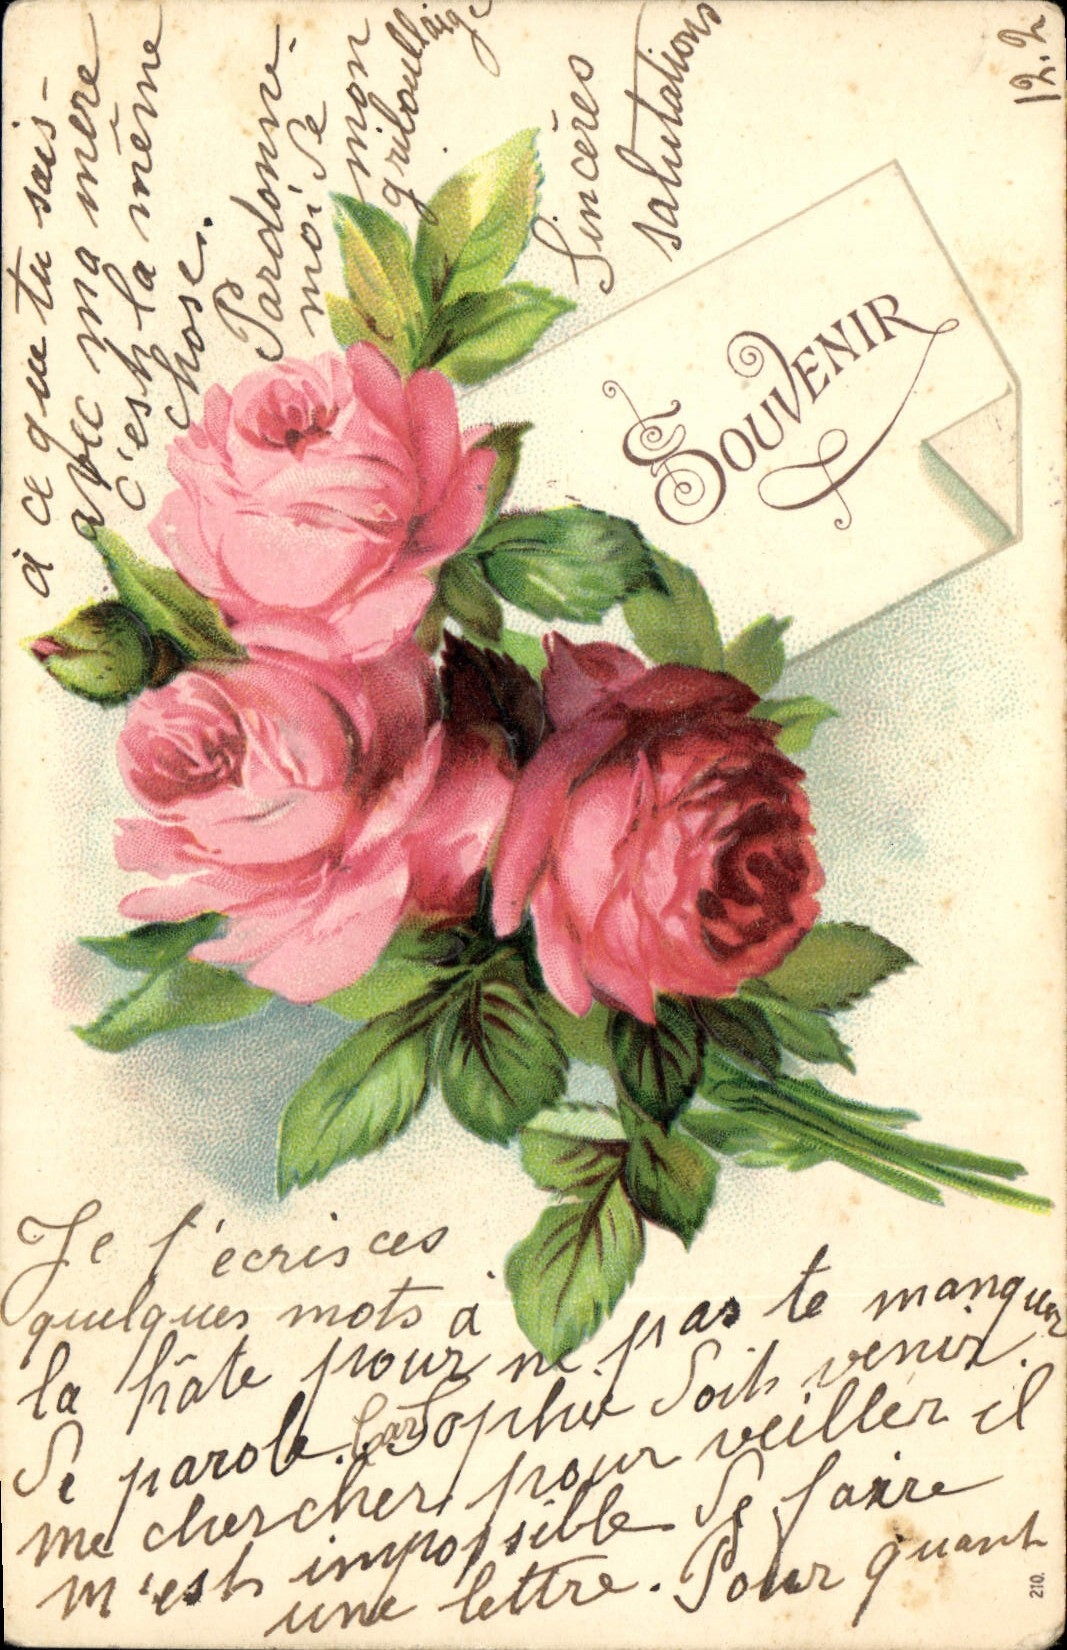 12.2
SOUVENIR
Je t'écris ces
quelques mots à
la hâte pour ne pas te manquer
de parole. Car Sophie doit venir
me chercher pour veiller il
m'est impossible de faire
une lettre. Pour quant
à ce que tu sais-
avec ma mère
c'est la même
chose.
Pardonne-
moi de
mon
gribouillage
Sincères
salutations
210.